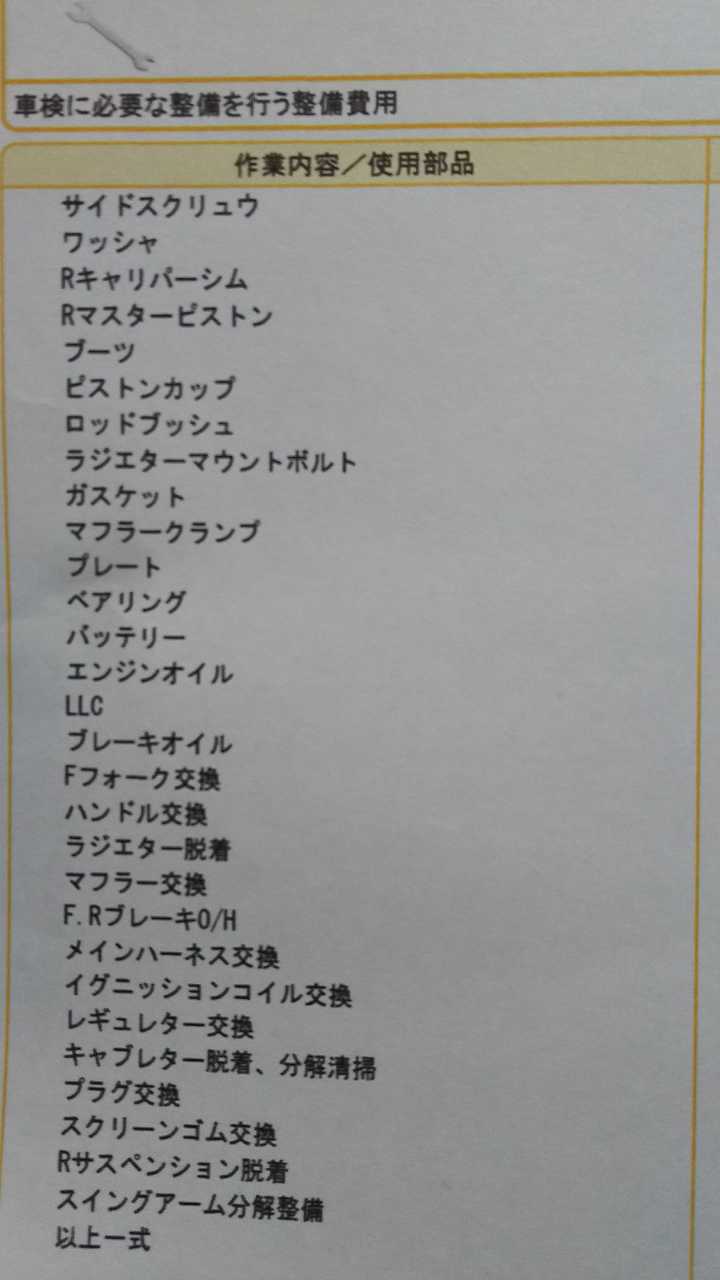 車検に必要な整備を行う整備費用
作業内容／使用部品
サイドスクリュウ
ワッシャ
Rキャリパーシム
Rマスターピストン
ブーツ
ピストンカップ
ロッドブッシュ
ラジエターマウントボルト
ガスケット
マフラークランプ
プレート
ベアリング
バッテリー
エンジンオイル
LLC
ブレーキオイル
Fフォーク交換
ハンドル交換
ラジエター脱着
マフラー交換
F.RブレーキO/H
メインハーネス交換
イグニッションコイル交換
レギュレター交換
キャブレター脱着、分解清掃
プラグ交換
スクリーンゴム交換
Rサスペンション脱着
スイングアーム分解整備
以上一式